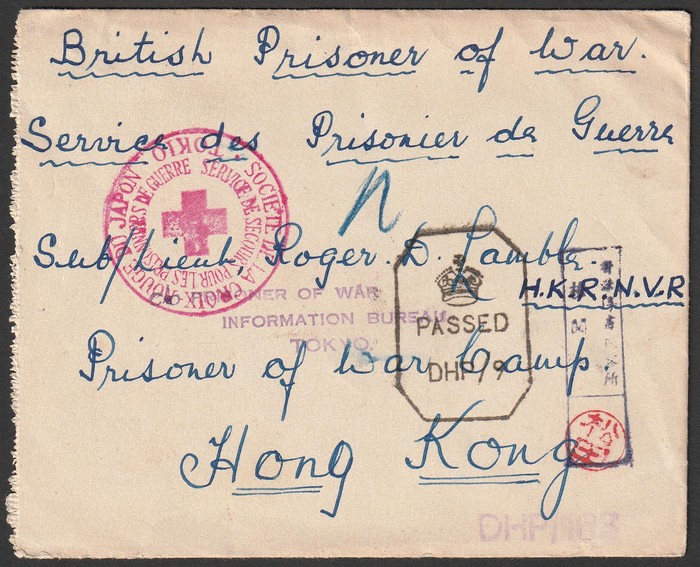 British Prisoner of War.
Service des Prisonier de Guerre
SOCIÉTÉ DE LA CROIX ROUGE DU JAPON TOKIO
SERVICE DE SECOURS POUR LES PRISONNIERS DE GUERRE
n
Sub/Lieut, Roger. D. Lamble.
R
H.K.R.N.V.R
PRISONER OF WAR
INFORMATION BUREAU
TOKYO.
PASSED
DHP/9
Prisoner of War Camp
Hong Kong
DHP/183